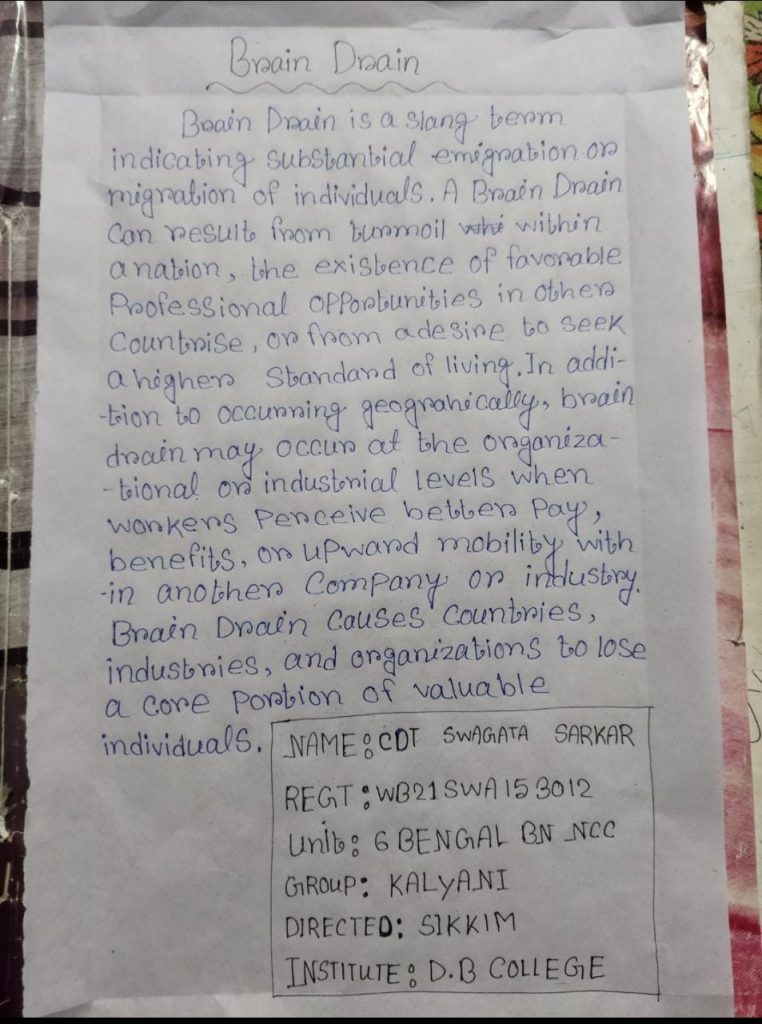 Brain Drain
Brain Drain is a slang term
indicating substantial emigration or
migration of individuals. A Brain Drain
Can result from turmoil whi within
a nation, the existence of favorable
Professional OPPortunities in other
Countrise, or from a desire to seek
a higher Standard of living. In addi-
-tion to occurring geograhically, brain
drain may occur at the organiza-
-tional or industrial levels when
workers Perceive better Pay,
benefits, or upward mobility with
-in another Company or industry.
Brain Drain Causes Countries,
industries, and organizations to lose
a core Portion of valuable
individuals.
NAME: CDT SWAGATA SARKAR
REGT: WB21SWA153012
Unit: 6 BENGAL BN NCC
GROUP: KALYANI
DIRECTED: SIKKIM
INSTITUTE: D.B COLLEGE